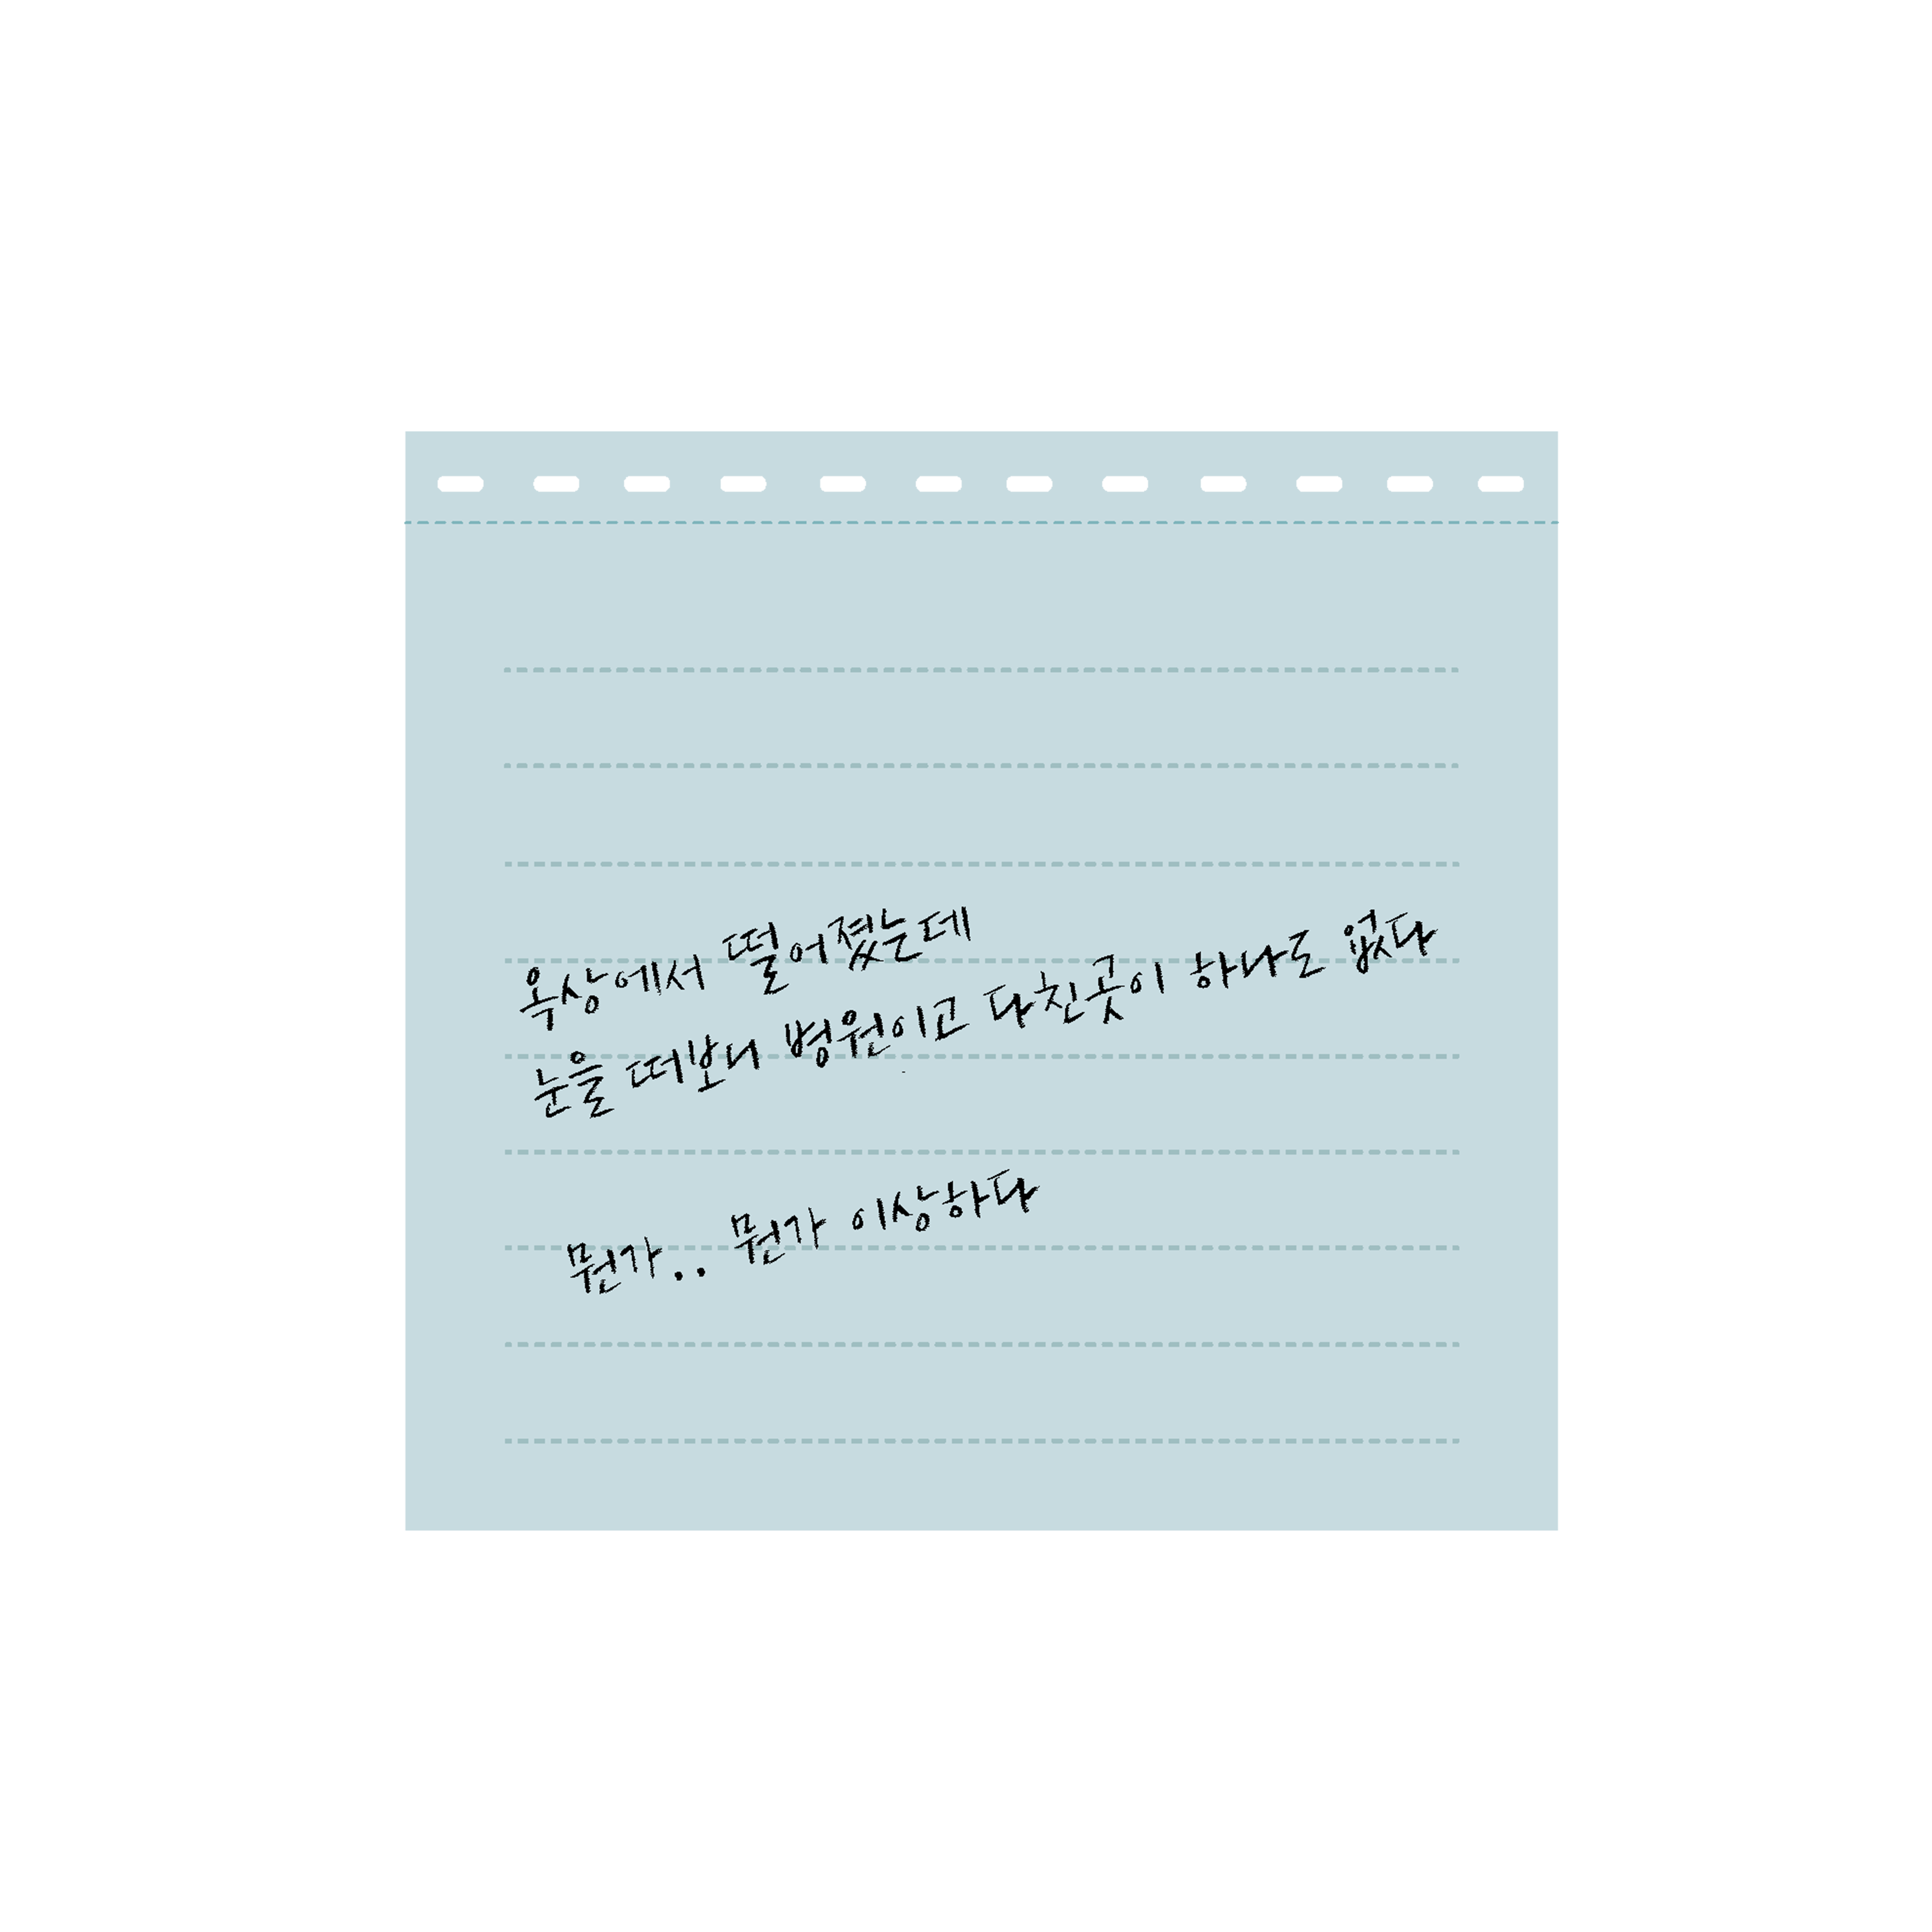 옥상에서 떨어졌는데
눈을 떠보니 병원이고 다친곳이 하나도 없다
뭔가.. 뭔가 이상하다